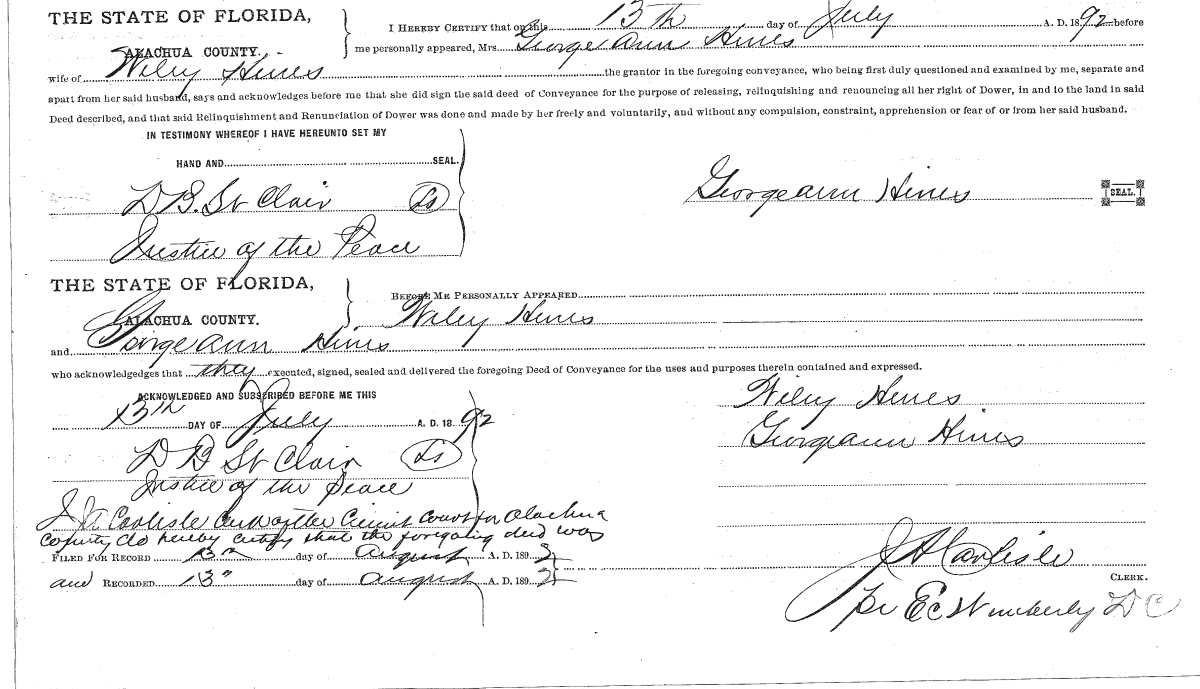 THE STATE OF FLORIDA,
ALACHUA COUNTY.
I HEREBY CERTIFY that on this 13th day of July A. D. 1892 before
me personally appeared, Mrs. George Ann Hines
wife of Wiley Hines the grantor in the foregoing conveyance, who being first duly questioned and examined by me, separate and
apart from her said husband, says and acknowledges before me that she did sign the said deed of Conveyance for the purpose of releasing, relinquishing and renouncing all her right of Dower, in and to the land in said
Deed described, and that said Relinquishment and Renunciation of Dower was done and made by her freely and voluntarily, and without any compulsion, constraint, apprehension or fear of or from her said husband.
IN TESTIMONY WHEREOF I HAVE HEREUNTO SET MY
HAND AND SEAL.
D B. St Clair Ls
Justice of the Peace
Georgeann Hines SEAL.
THE STATE OF FLORIDA,
ALACHUA COUNTY.
BEFORE ME PERSONALLY APPEARED
Wiley Hines
and Georgeann Hines
who acknowledgedges that they executed, signed, sealed and delivered the foregoing Deed of Conveyance for the uses and purposes therein contained and expressed.
ACKNOWLEDGED AND SUBSCRIBED BEFORE ME THIS
13th DAY OF July A. D. 1892
D B St Clair Ls
Justice of the Peace
Wiley Hines
Georgeann Hines
I J A Carlisle Clerk of the Circuit Court for Alachua
County do hereby certify that the foregoing deed was
FILED FOR RECORD 13th day of August A. D. 1892
and RECORDED 13" day of August A. D. 1892
J A Carlisle
CLERK.
pr E C Wimberly D C